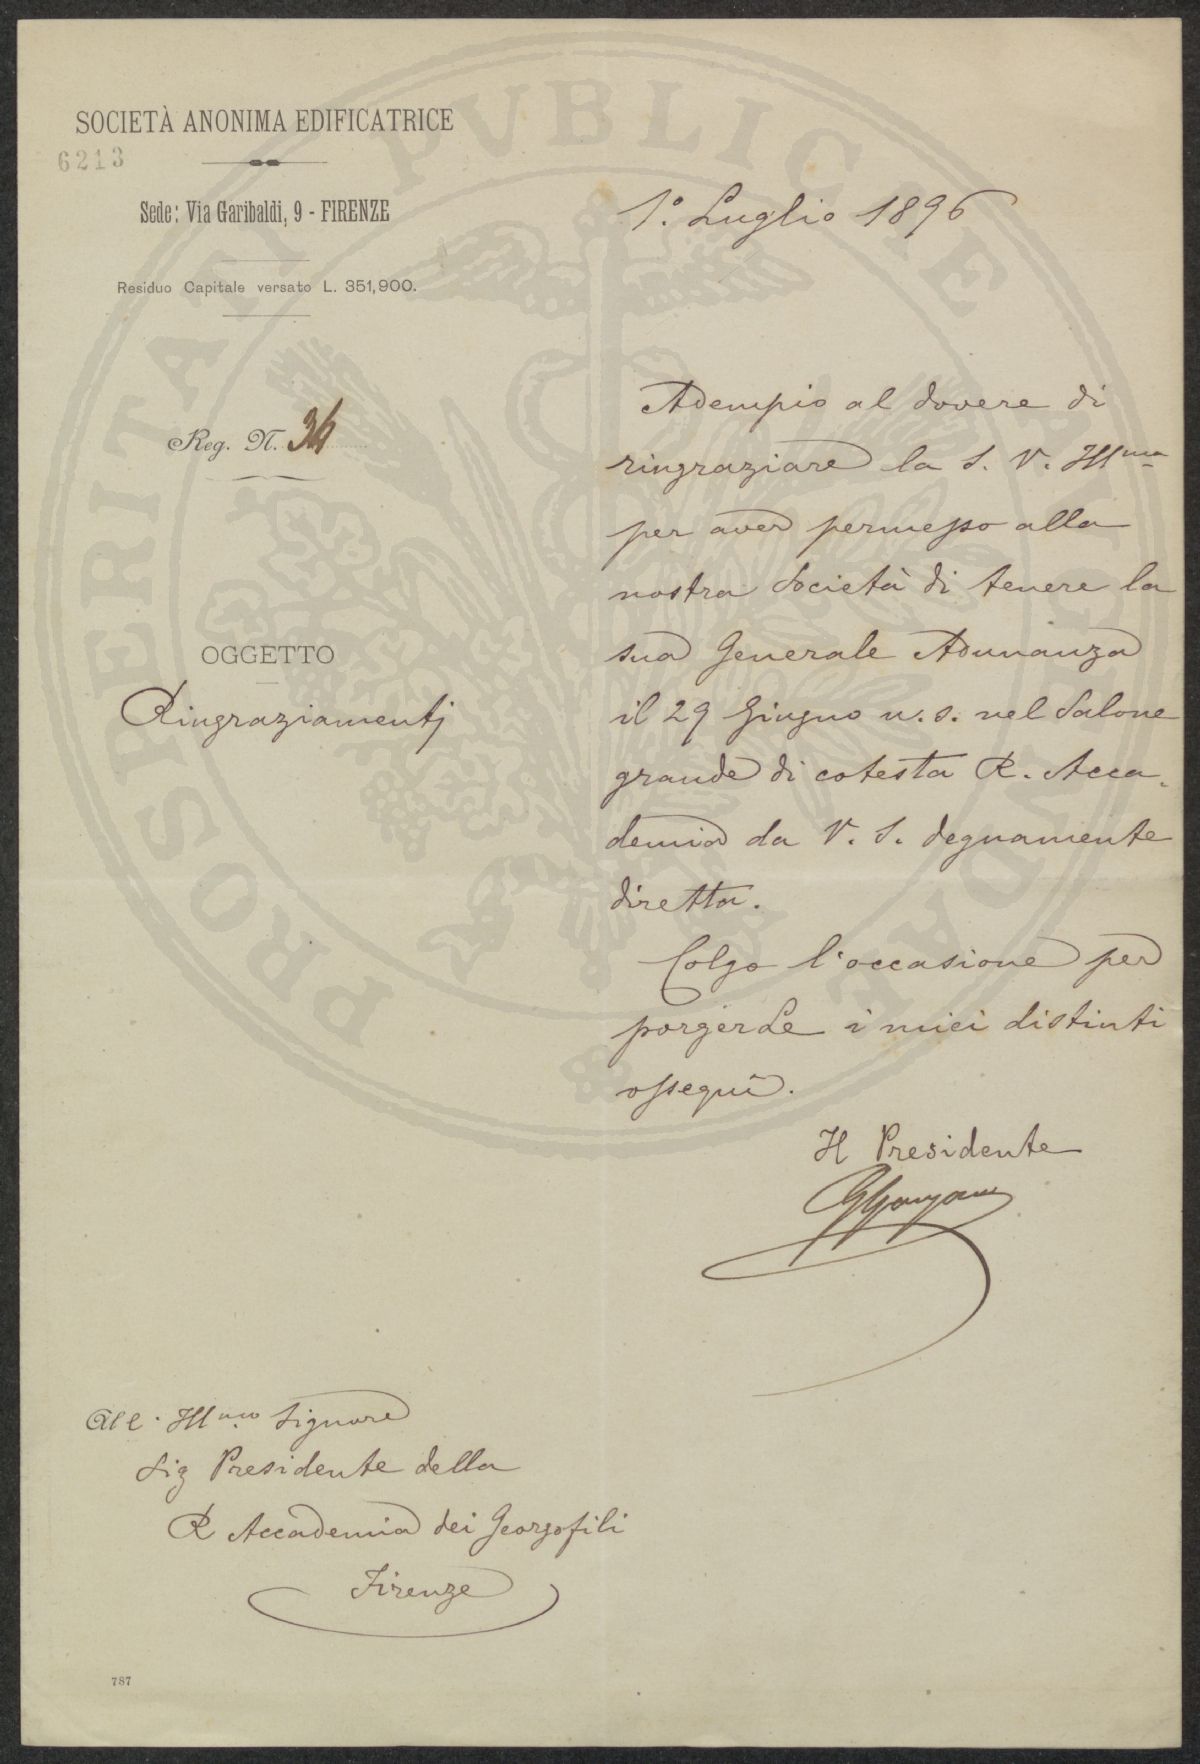 SOCIETÀ ANONIMA EDIFICATRICE
6213
Sede: Via Garibaldi, 9 - FIRENZE
Residuo Capitale versato L. 351,900.
Reg. N. 34
OGGETTO
Ringraziamenti
1.º Luglio 1896
Adempio al dovere di
ringraziare la S. V. Ill.ma
per aver permesso alla
nostra Società di tenere la
sua Generale Adunanza
il 29 Giugno u. s. nel Salone
grande di cotesta R. Acca-
demia da V. S. degnamente
diretta.
Colgo l'occasione per
porgerLe i miei distinti
ossequi.
Il Presidente
All. Ill.mo Signore
Sig Presidente della
R Accademia dei Georgofili
Firenze
787
PROSPERITATI PVBLICAE AVGENDAE